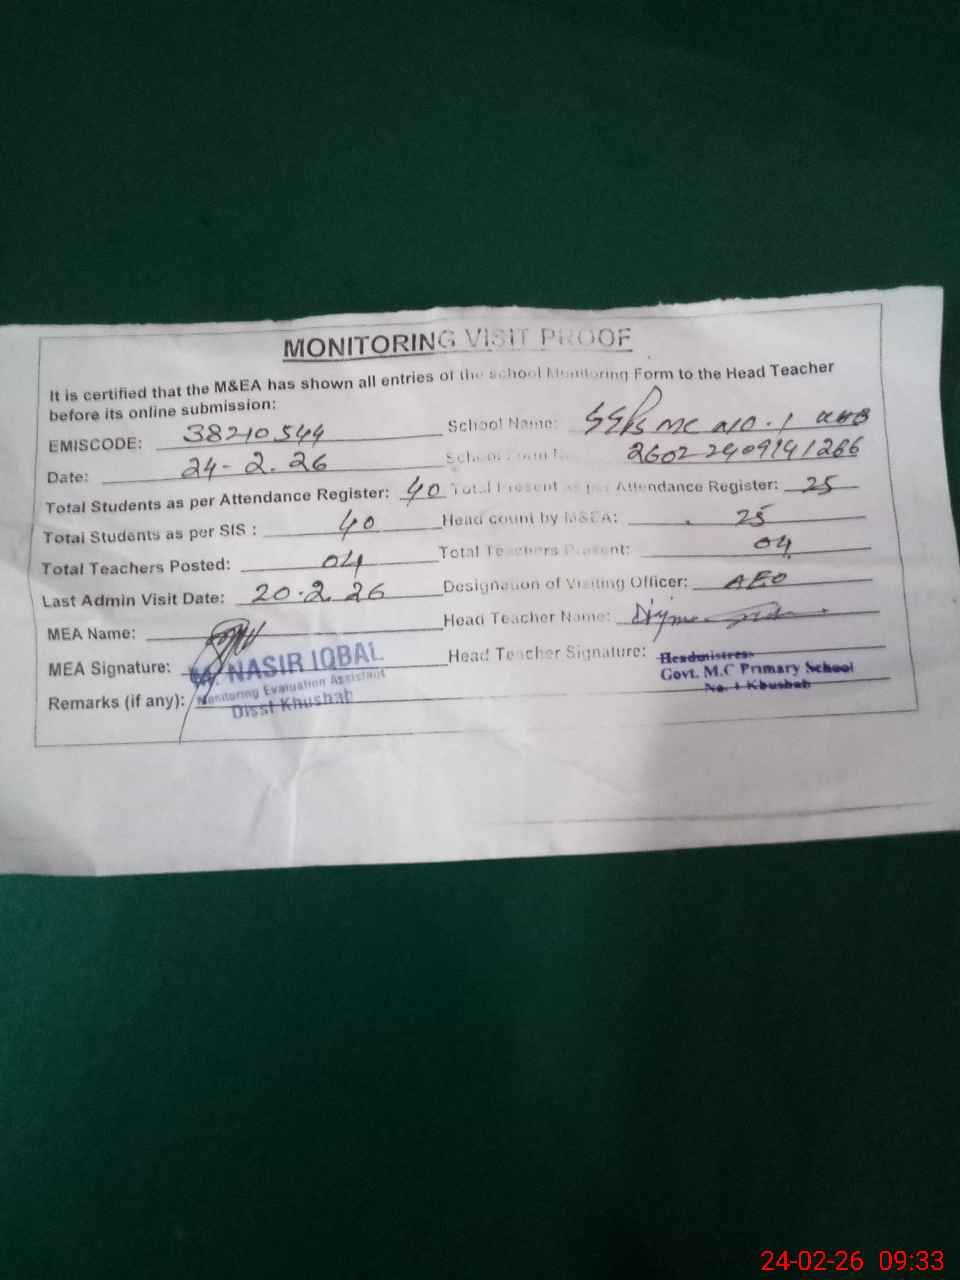 MONITORING VISIT PROOF
It is certified that the M&EA has shown all entries of the school Monitoring Form to the Head Teacher
before its online submission:
EMISCODE: 38210544 School Name: GGPS MC NO.1 KHB
Date: 24-2.26 26022409141266
Total Students as per Attendance Register: 40 Total Present as per Attendance Register: 25
Total Students as per SIS : 40 Head count by M&EA: 25
Total Teachers Posted: 04 Total Teachers Present: 04
Last Admin Visit Date: 20.2.26 Designation of Visiting Officer: AEO
MEA Name: Head Teacher Name:
MEA Signature: M. NASIR IQBAL Head Teacher Signature: Headmistress
Monitoring Evaluation Assistant Govt. M.C Primary School
Remarks (if any): Disst Khushab No. 1 Khushab
24-02-26 09:33